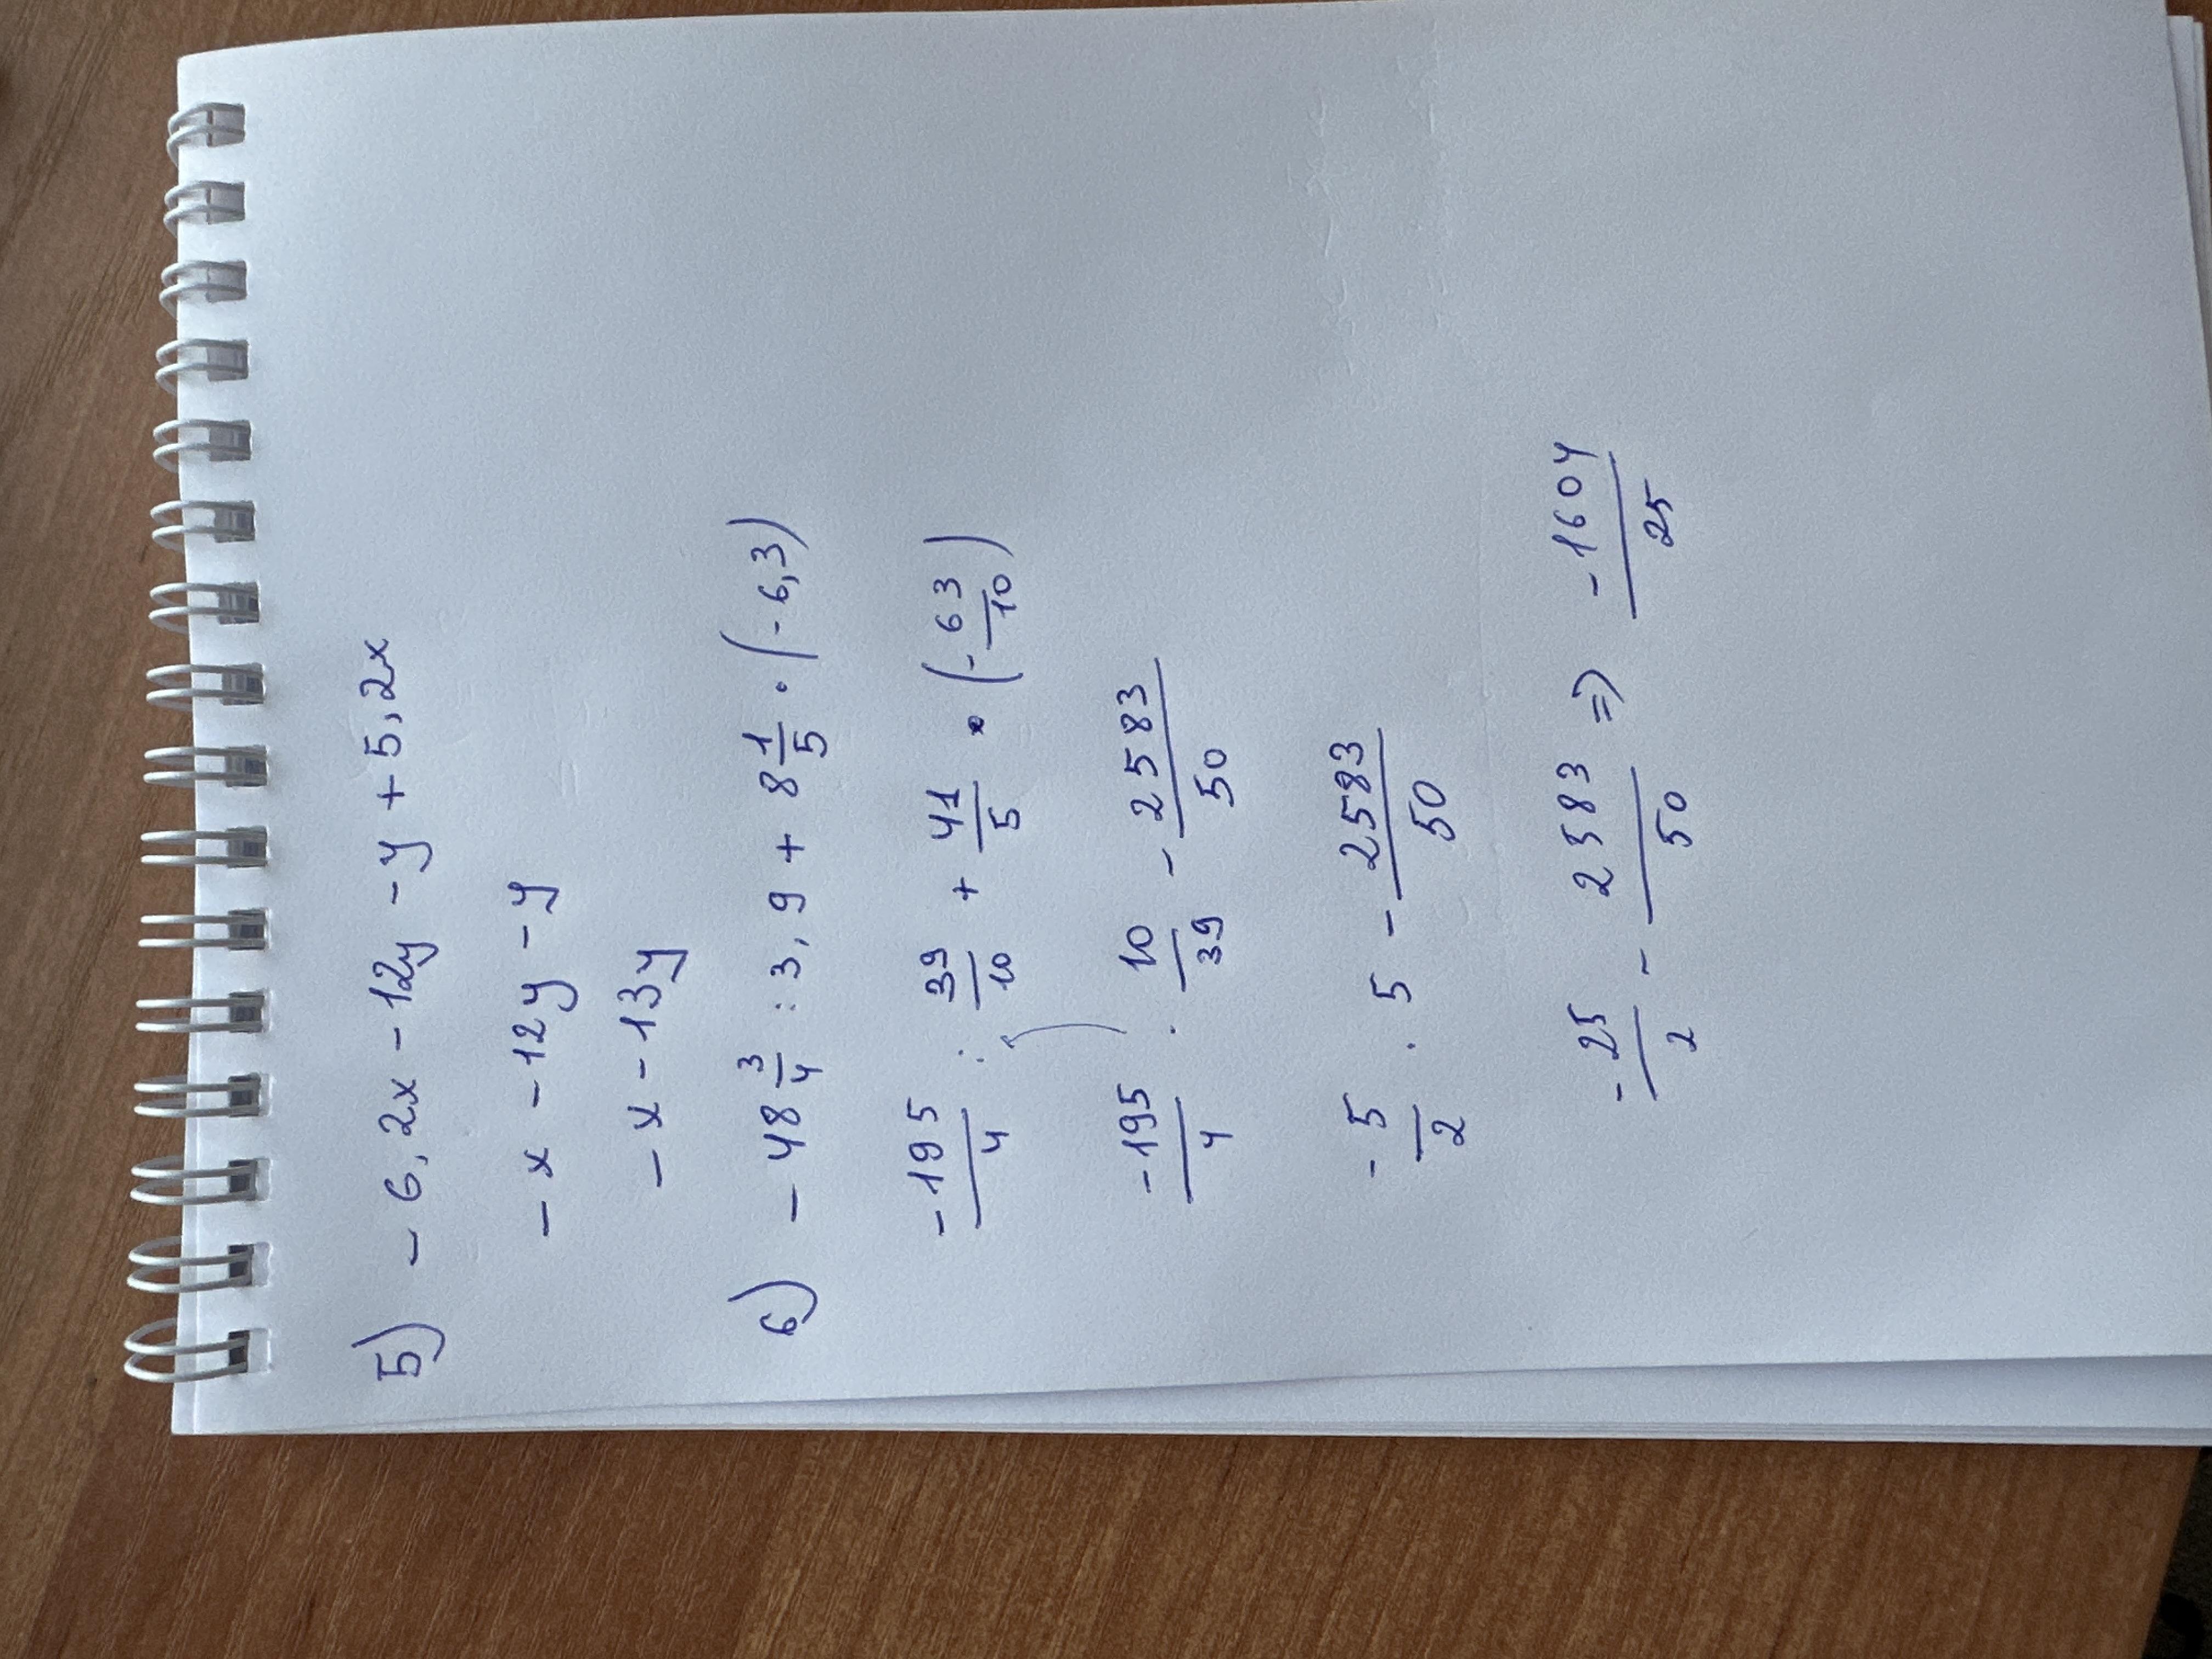 5) - 6,2x - 12y - y + 5,2x
- x - 12y - y
- x - 13y
6) - 48 3/4 : 3,9 + 8 1/5 · (-6,3)
-195/4 : 39/10 + 41/5 · (-63/10)
-195/4 · 10/39 - 2583/50
-5/2 · 5 - 2583/50
-25/2 - 2583/50 => -1604/25